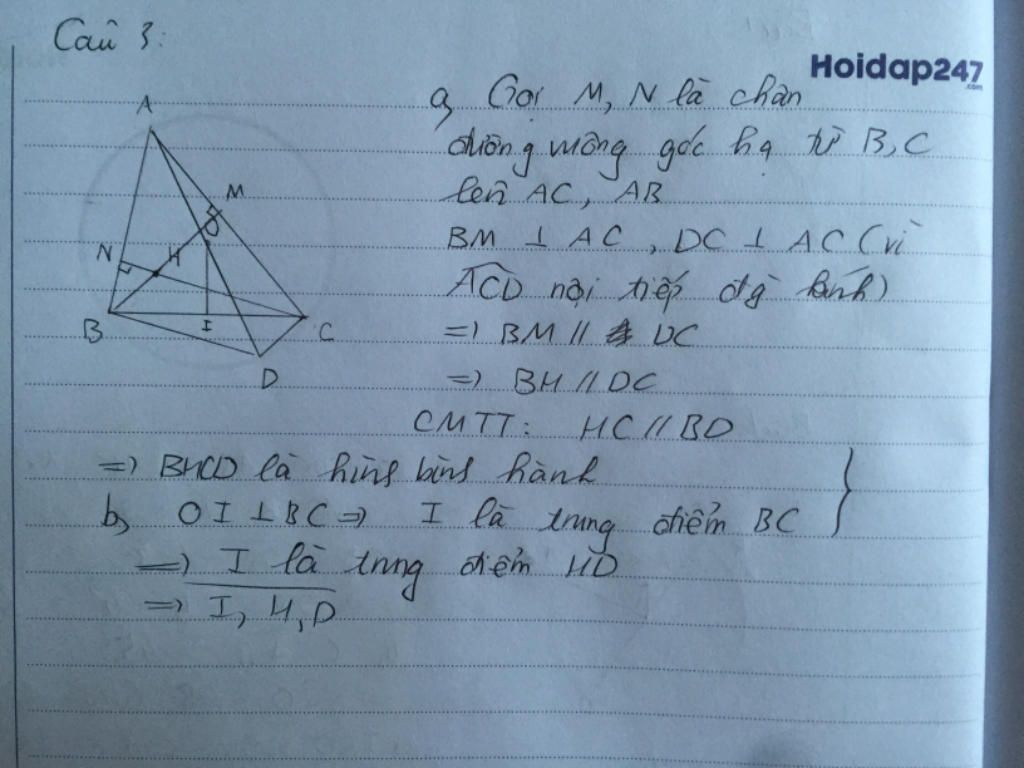 Câu 3:
Hoidap247
.com
A
M
N
H
O
B
I
C
D
a, Gọi M, N là chân
đường vuông góc hạ từ B, C
lên AC, AB
BM ⊥ AC, DC ⊥ AC (vì
ACD nội tiếp đg kính)
=> BM // DC
=> BH // DC
CMTT: HC // BD
=> BHCD là hình bình hành
b, OI ⊥ BC => I là trung điểm BC
=> I là trung điểm HD
=> I, H, D